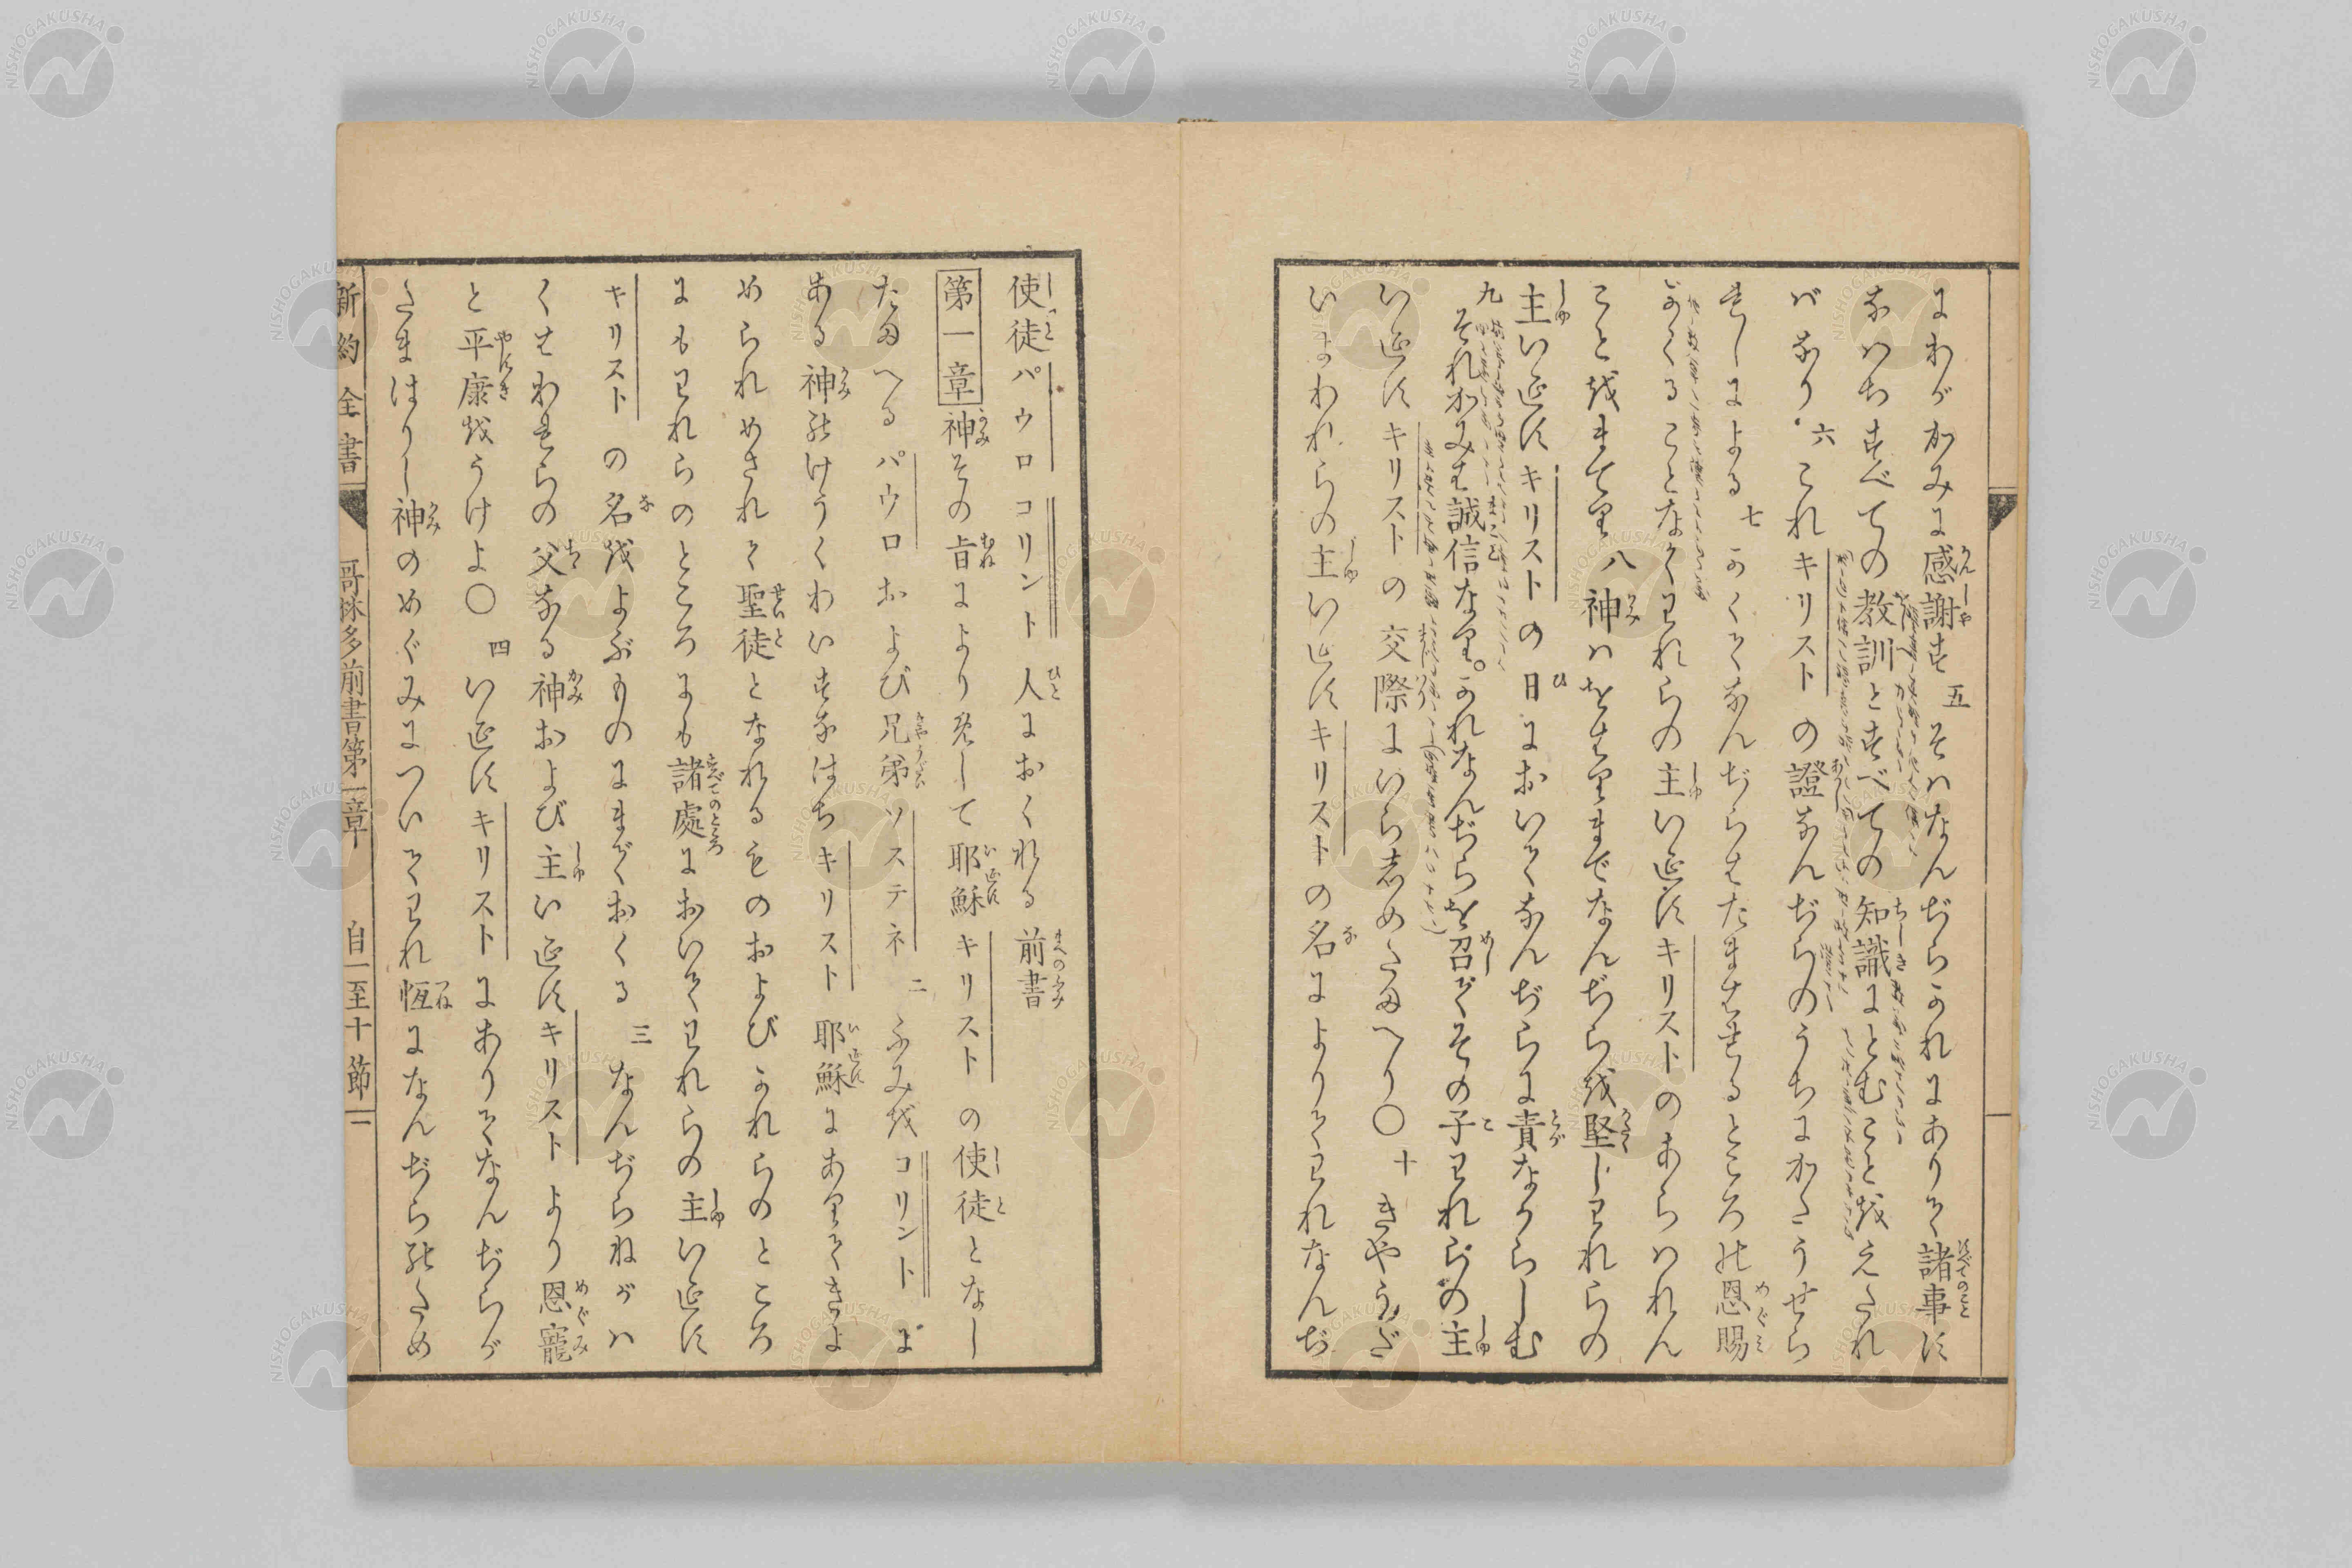 使徒パウロコリント人におくれる前書
第一章神その旨によりめして耶穌キリストの使徒となし
たまへるパウロおよび兄弟ソステネ 二 ふみをコリントに
ある神のけうくわいすなはちキリスト耶穌にありてきよ
められめされて聖徒となれるものおよびかれらのところ
にもわれらのところにも諸處においてわれらの主いえす
キリストの名をよぶものにまでおくる 三 なんぢらねがは
くはわれらの父なる神および主いえすキリストより恩寵
と平康をうけよ〇 四 いえすキリストにありてなんぢらが
たまはりし神のめぐみについてわれ恒になんぢらのため
新約全書 哥林多前書第一章 自一至十節 一
にわがかみに感謝す 五 そはなんぢらかれにありて諸事す
なはちすべての教訓とすべての知識にとむことをえたれ
ばなり 六 これキリストの證なんぢらのうちにかたうせら
れしによる 七 かくてなんぢらはたまはれるところの恩賜
かくることなくわれらの主いえすキリストのあらはれん
ことをまてり 八 神はをはりまでなんぢらを堅しわれらの
主いえすキリストの日においてなんぢらに責なからしむ
九 それかみは誠信なり。かれなんぢらを召てその子われらの主
いえすキリストの交際にいらしめたまへり〇 十 きやうだ
いよわれらの主いえすキリストの名によりてわれなんぢ
NISHOGAKUSHA